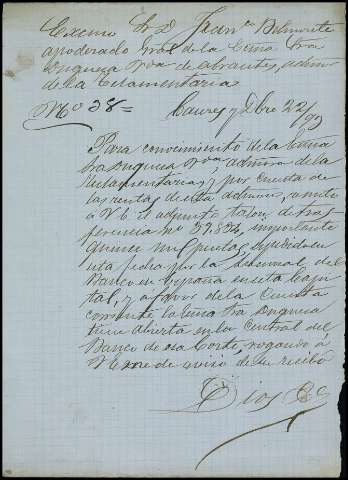 Excmo Sr D. Juan Belmonte
apoderado gral de la Excma Sra
Duquesa Vda de Abrantes, admra
de la Testamentaria
Nº 38=
Caceres y Dbre 22/93
Para conocimiento de la Excma
Sra Duquesa Vda, admra de la
Testamentaria, y por cuenta de
las rentas de esta admon, remito
a V. E. el adjunto talon de tras-
ferencia nº 37.834, importante
quince mil pesetas, expedido en
esta fecha por la Sucursal del
Banco de España en esta Capi-
tal, y a favor de la cuenta
corriente la Excma Sra Duquesa
tiene abierta en la Central del
Banco de esa Corte, rogando á
V. E. me dé aviso de su recibo
Dios &a